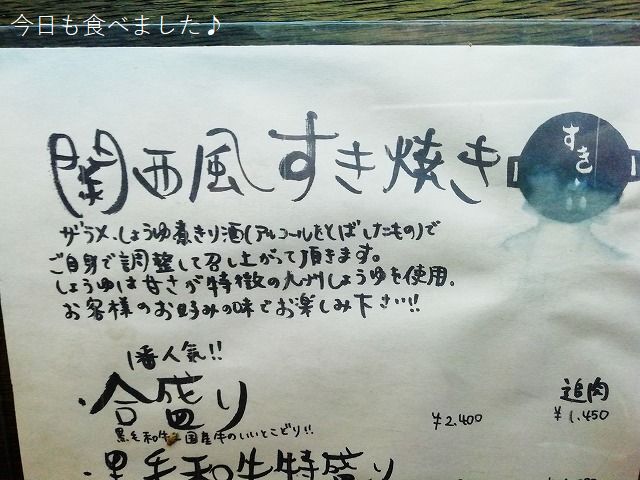 今日も食べました♪
関西風すき焼き
すき
ザラメ、しょうゆ煮きり酒(アルコールをとばしたもの)で
ご自身で調整して召し上がって頂きます。
しょうゆは甘さが特徴の九州しょうゆを使用。
お客様のお好みの味でお楽しみ下さい!!
1番人気!!
・合盛り ¥2,400
追肉 ¥1,450
黒毛和牛と国産牛のいいとこどり!!
・黒毛和牛特盛り